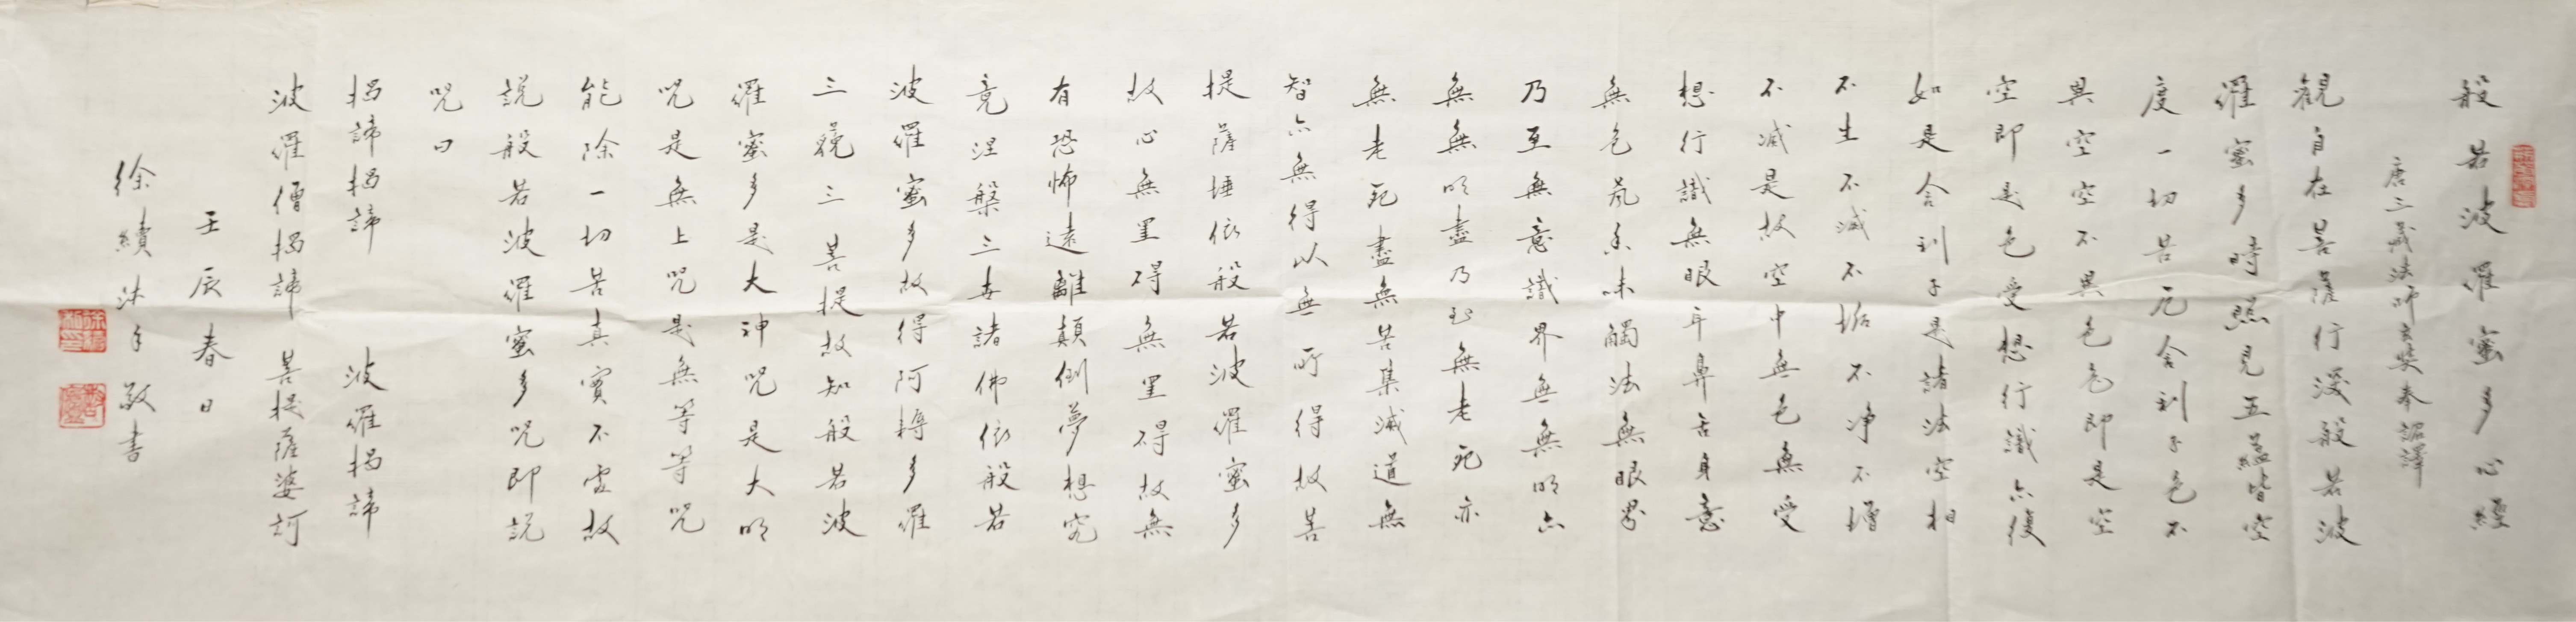 般若波羅蜜多心經
唐三藏法師玄奘奉詔譯
觀自在菩薩行深般若波
羅蜜多時照見五蘊皆空
度一切苦厄舍利子色不
異空空不異色色即是空
空即是色受想行識亦復
如是舍利子是諸法空相
不生不滅不垢不淨不增
不減是故空中無色無受
想行識無眼耳鼻舌身意
無色聲香味觸法無眼界
乃至無意識界無無明亦
無無明盡乃至無老死亦
無老死盡無苦集滅道無
智亦無得以無所得故菩
提薩埵依般若波羅蜜多
故心無罣碍無罣碍故無
有恐怖遠離顛倒夢想究
竟涅槃三世諸佛依般若
波羅蜜多故得阿耨多羅
三藐三菩提故知般若波
羅蜜多是大神呪是大明
呪是無上呪是無等等呪
能除一切苦真實不虛故
說般若波羅蜜多呪即說
呪曰
揭諦揭諦 波羅揭諦
波羅僧揭諦 菩提薩婆訶
壬辰春日
徐續沐手敬書